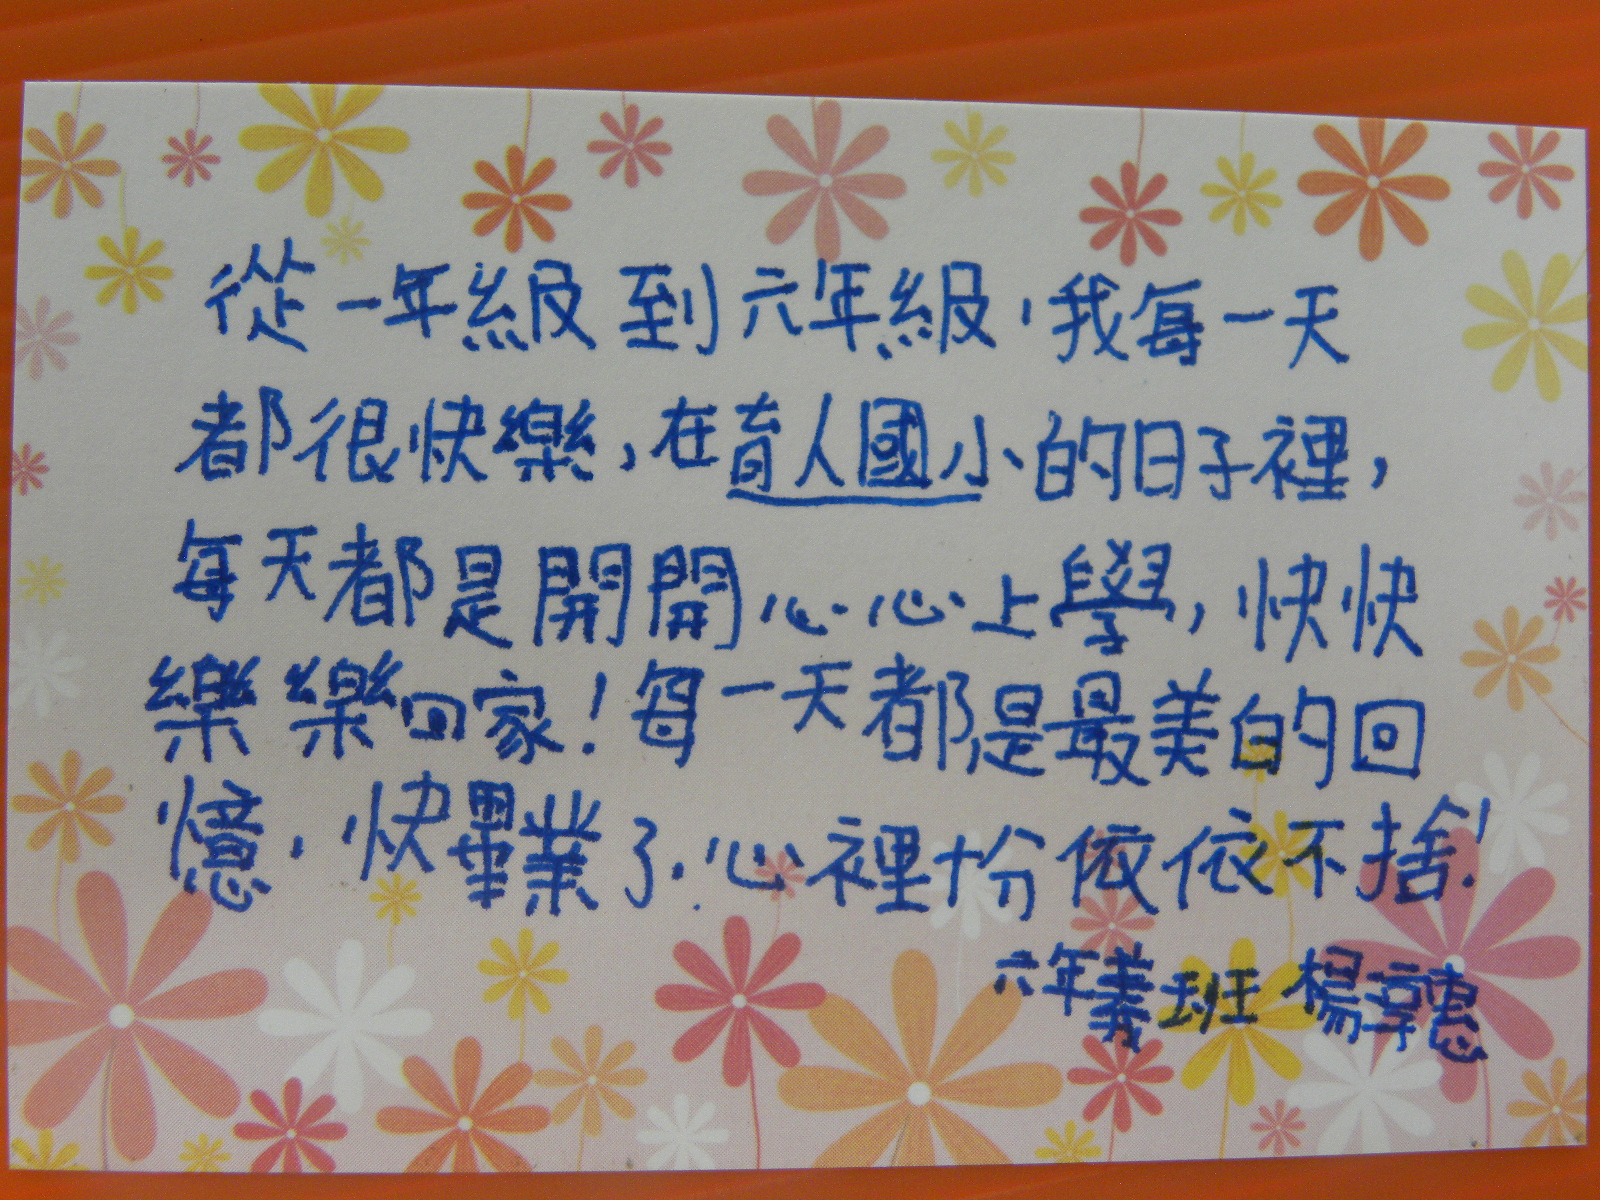 從一年級到六年級，我每一天
都很快樂，在育人國小的日子裡，
每天都是開開心心上學，快快
樂樂回家！每一天都是最美的回
憶，快畢業了，心裡十分依依不捨！
六年義班 楊聿惠